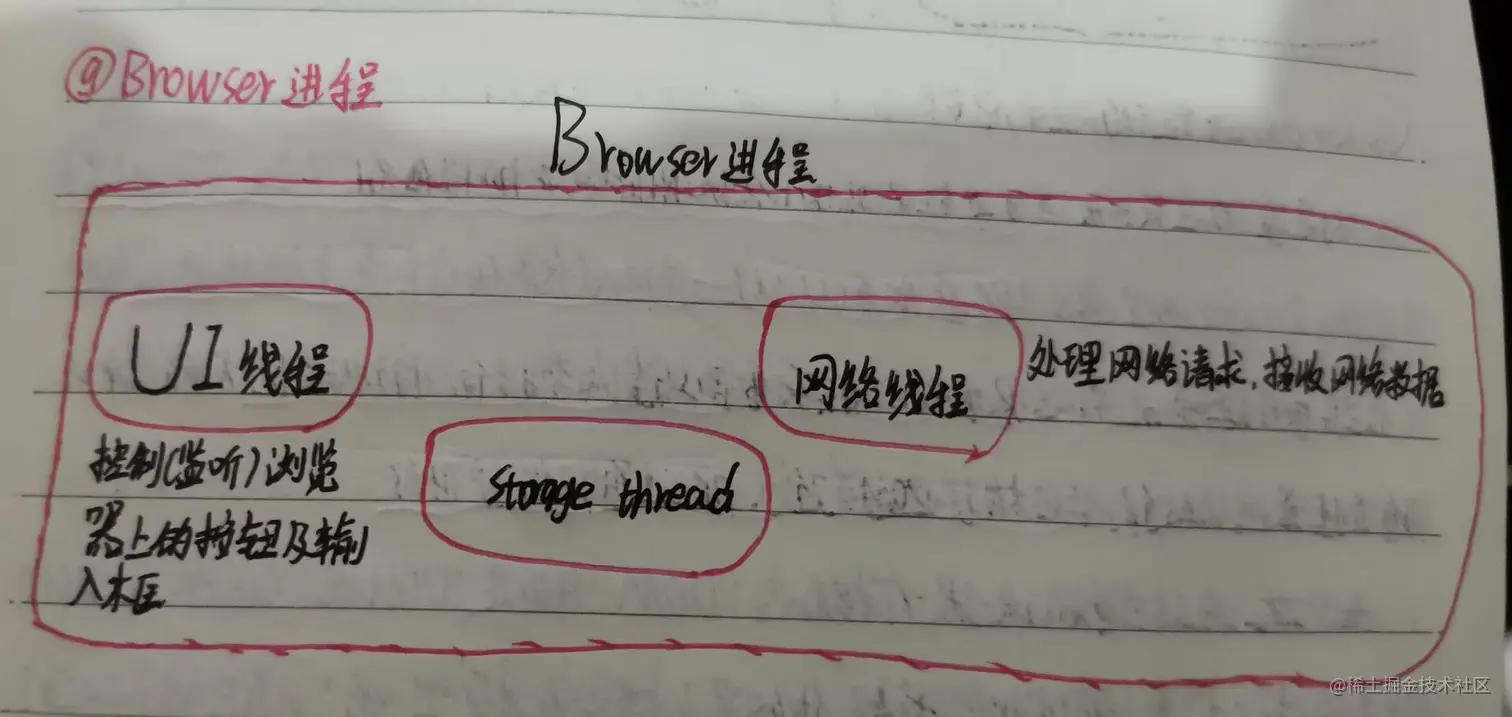 @Browser进程
Browser进程
UI线程
控制(监听)浏览
器上的按钮及输
入框
storage thread
网络线程
处理网络请求,接收网络数据
@稀土掘金技术社区